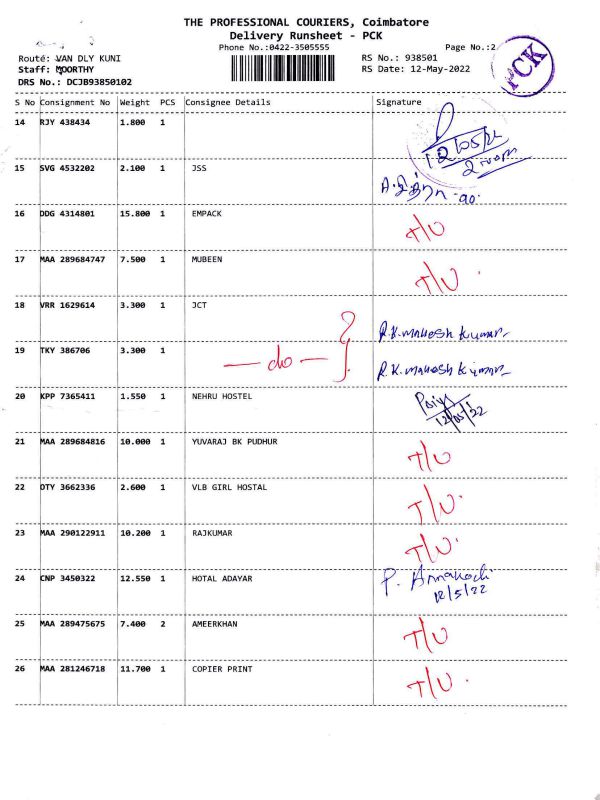 THE PROFESSIONAL COURIERS, Coimbatore
Delivery Runsheet - PCK
Phone No.:0422-3505555
Page No.:2
PCK
Routé: VAN DLY KUNI
RS No.: 938501
Staff: MOORTHY
RS Date: 12-May-2022
DRS No.: DCJB93850102
S No Consignment No Weight PCS Consignee Details Signature
14 RJY 438434 1.800 1
12/05/22
2:00pm
15 SVG 4532202 2.100 1 JSS
16 DDG 4314801 15.800 1 EMPACK T/U
17 MAA 289684747 7.500 1 MUBEEN T/U
18 VRR 1629614 3.300 1 JCT R.K. Mahesh Kumar
19 TKY 386706 3.300 1 — do — R.K. Mahesh Kumar
20 KPP 7365411 1.550 1 NEHRU HOSTEL
12/05/22
21 MAA 289684816 10.000 1 YUVARAJ BK PUDHUR T/U
22 DTY 3662336 2.600 1 VLB GIRL HOSTAL T/U
23 MAA 290122911 10.200 1 RAJKUMAR T/U
24 CNP 3450322 12.550 1 HOTAL ADAYAR
12/5/22
25 MAA 289475675 7.400 2 AMEERKHAN T/U
26 MAA 281246718 11.700 1 COPIER PRINT T/U